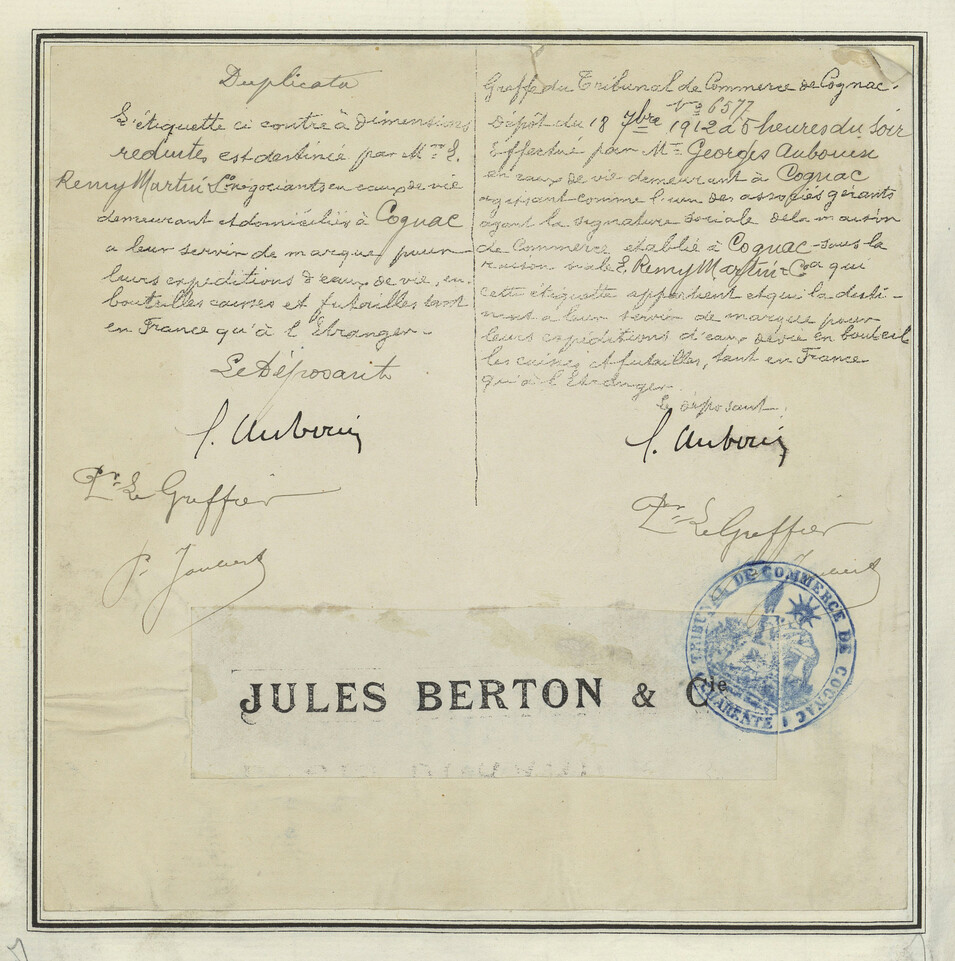 Duplicata
L'étiquette ci contre à dimensions
reduites est destinée par Mrs E.
Remy Martin & Co négociants en eaux de vie
demeurant et domiciliés à Cognac
a leur servir de marque pour
leurs expéditions d'eaux de vie, en
bouteilles caisses et futailles tant
en France qu'à l'Etranger.
Le Déposant
G. Auboin
Pr Le Greffier
P. Jouvert
Greffe du Tribunal de Commerce de Cognac.
No 6577
Dépôt du 18 7bre 1912 à 5 heures du soir
Effectué par Mr Georges Auboin
en eaux de vie demeurant à Cognac
agissant comme l'un des associés gérants
ayant la signature sociale de la maison
de Commerce etablie à Cognac sous la
raison sociale E. Remy Martin & Co a qui
cette étiquette appartient et qui la desti-
nent a leur servir de marque pour
leurs expéditions d'eaux de vie en bouteil
les caisses et futailles, tant en France
qu'à l'Etranger.
Le déposant
G. Auboin
Pr Le Greffier
JULES BERTON & Cie
TRIBUNAL DE COMMERCE DE COGNAC
CHARENTE